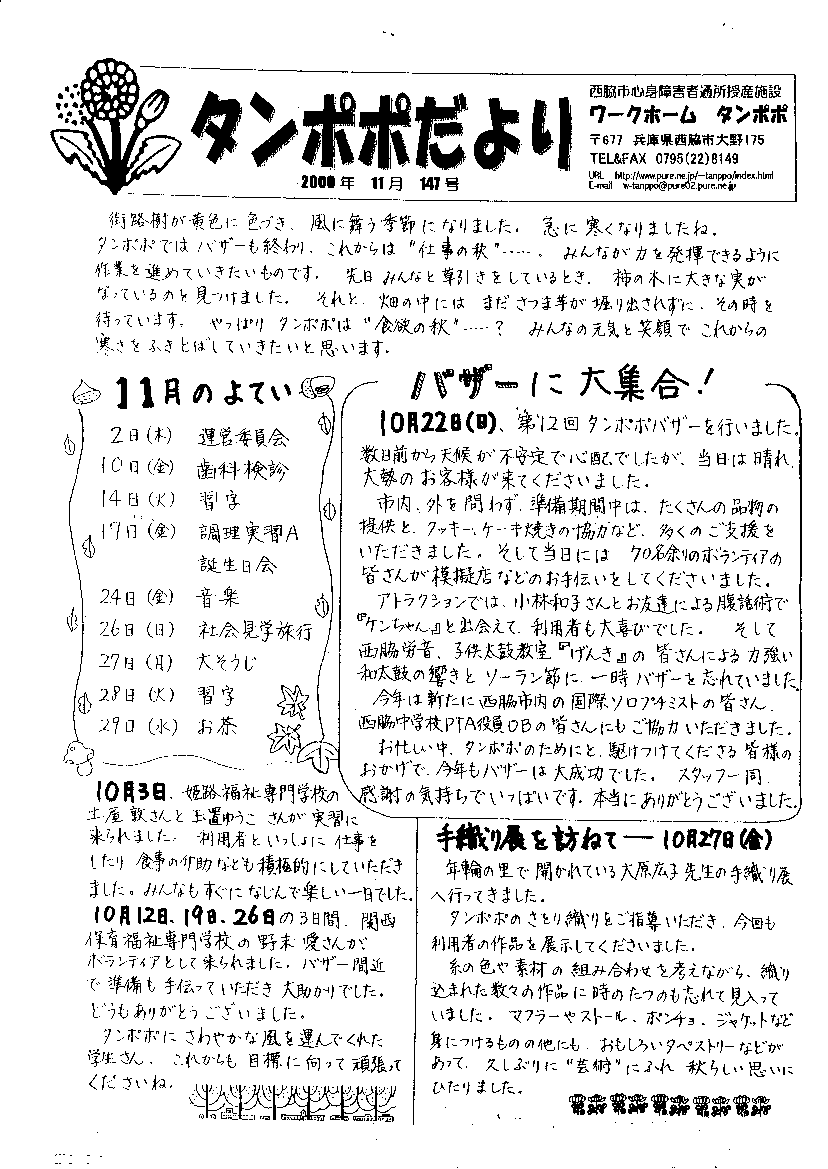 タンポポだより
2000年 11月 147号
西脇市心身障害者通所授産施設
ワークホーム タンポポ
〒677 兵庫県西脇市大野175
TEL&FAX 0795(22)8149
URL http://www.pure.ne.jp/~tanppo/index.html
E-mail w-tanppo@pure02.pure.ne.jp
街路樹が黄色に色づき、風に舞う季節になりました。 急に寒くなりましたね。
タンポポではバザーも終わり、これからは“仕事の秋”……。 みんなが力を発揮できるように
作業を進めていきたいものです。 先日みんなと草引きをしているとき、柿の木に大きな実が
なっているのを見つけました。 それと、畑の中にはまださつま芋が掘り出されずに、その時を
待っています。 やっぱりタンポポは“食欲の秋”……? みんなの元気と笑顔でこれからの
寒さをふきとばしていきたいと思います。
11月のよてい
2日(木) 運営委員会
10日(金) 歯科検診
14日(火) 習字
17日(金) 調理実習A
誕生日会
24日(金) 音楽
26日(日) 社会見学旅行
27日(月) 大そうじ
28日(火) 習字
29日(水) お茶
バザーに大集合!
10月22日(日)、第12回タンポポバザーを行いました。
数日前から天候が不安定で心配でしたが、当日は晴れ、
大勢のお客様が来てくださいました。
市内、外を問わず、準備期間中は、たくさんの品物の
提供と、クッキー、ケーキ焼きの協力など、多くのご支援を
いただきました。そして当日には 70名余りのボランティアの
皆さんが模擬店などのお手伝いをしてくださいました。
アトラクションでは、小林和子さんとお友達による腹話術で
『ケンちゃん』と出会えて、利用者も大喜びでした。 そして
西脇労音、子供太鼓教室『げんき』の皆さんによる力強い
和太鼓の響きとソーラン節に、一時バザーを忘れていました。
今年は新たに西脇市内の国際ソロプチミストの皆さん、
西脇中学校PTA役員OBの皆さんにもご協力いただきました。
お忙しい中、タンポポのためにと、駆けつけてくださる皆様の
おかげで、今年もバザーは大成功でした。 スタッフ一同、
感謝の気持ちでいっぱいです。本当にありがとうございました。
10月3日、姫路福祉専門学校の
土屋敦さんと玉置ゆうこさんが実習に
来られました。 利用者といっしょに仕事を
したり食事の介助なども積極的にしていただき
ました。みんなもすぐになじんで楽しい一日でした。
10月12日、19日、26日の3日間、関西
保育福祉専門学校の野末愛さんが
ボランティアとして来られました。バザー間近
で準備も手伝っていただき大助かりでした。
どうもありがとうございました。
タンポポにさわやかな風を運んでくれた
学生さん、これからも目標に向って頑張って
くださいね。
手織り展を訪ねて ― 10月27日(金)
年輪の里で開かれている大原広子先生の手織り展
へ行ってきました。
タンポポのさをり織りをご指導いただき、今回も
利用者の作品を展示してくださいました。
糸の色や素材の組み合わせを考えながら、織り
込まれた数々の作品に時のたつのも忘れて見入って
いました。マフラーやストール、ポンチョ、ジャケットなど
身につけるものの他にも、おもしろいタペストリーなどが
あって、久しぶりに“芸術”にふれ秋らしい思いに
ひたりました。